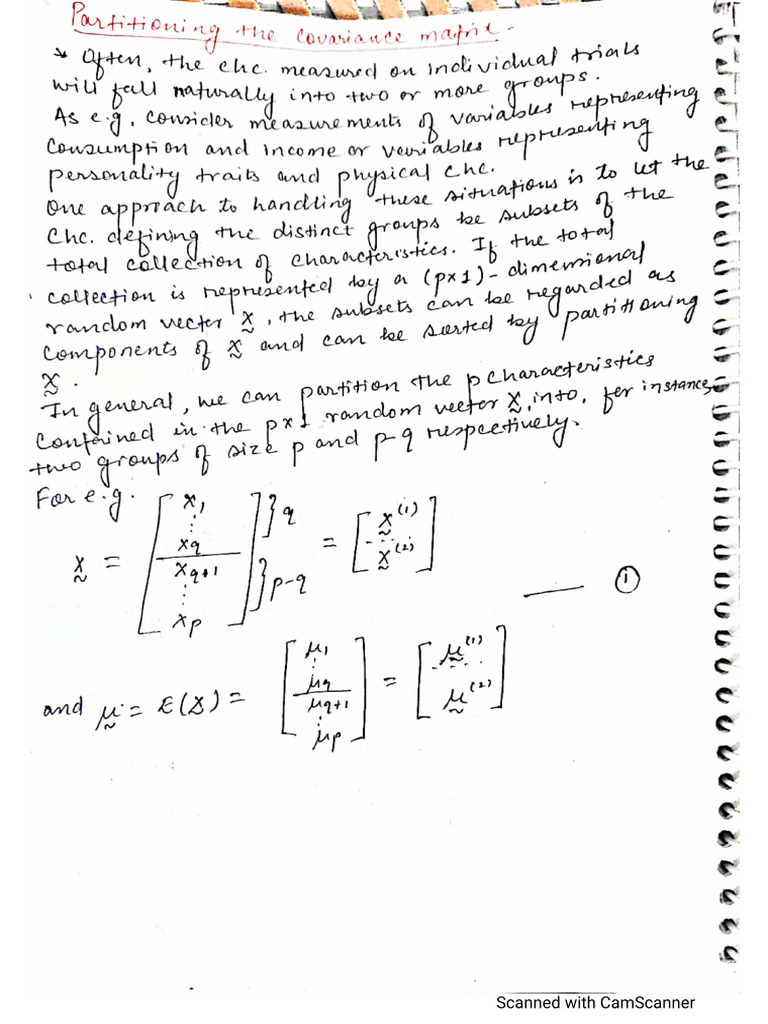 Partitioning the covariance matrix -
* Often, the chc. measured on individual trials
will fall naturally into two or more groups.
As e.g, consider measurements of variables representing
consumption and income or variables representing
personality traits and physical chc.
One approach to handling these situations is to let the
chc. defining the distinct groups be subsets of the
total collection of characteristics. If the total
collection is represented by a (p×1)- dimensional
random vector X̰, the subsets can be regarded as
components of X̰ and can be sorted by partitioning
X̰.
In general, we can partition the p characteristics
contained in the p×1 random vector X̰, into, for instance,
two groups of size p and p-q respectively.
For e.g.
X̰ = [ X1 ⋮ Xq | Xq+1 ⋮ Xp ] }q }p-q = [ X̰^(1) ... X̰^(2) ] — ①
and μ̰ = E(X̰) = [ μ1 ⋮ μq | μq+1 ⋮ μp ] = [ μ̰^(1) ... μ̰^(2) ]
Scanned with CamScanner